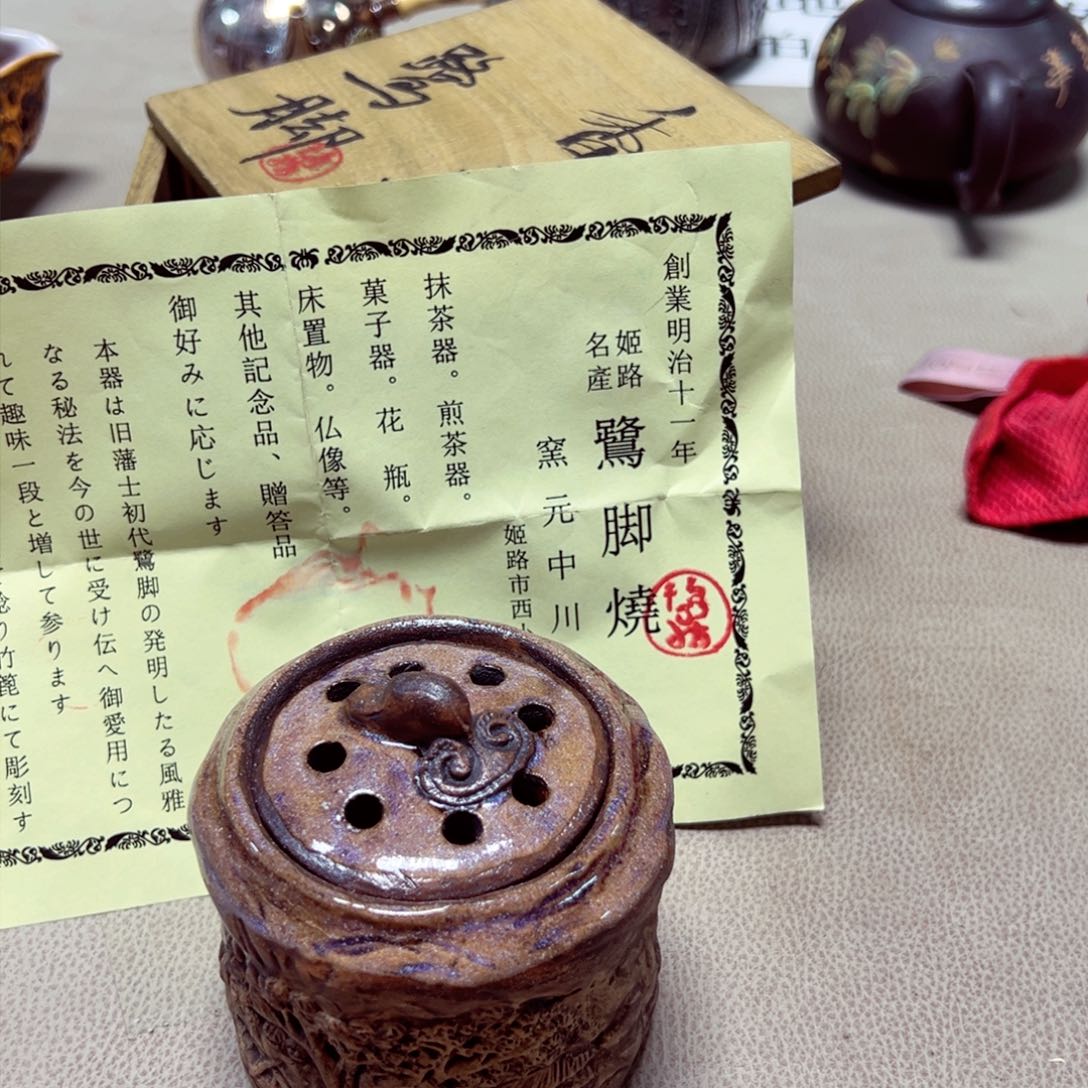 創業明治十一年
姫路
名產
鷺脚燒
窯元中川
姫路市西
抹茶器。煎茶器。
菓子器。花瓶。
床置物。仏像等。
其他記念品、贈答品
御好みに応じます
本器は旧藩士初代鷺脚の発明したる風雅
なる秘法を今の世に受け伝へ御愛用につ
れて趣味一段と増して参ります
り竹箆にて彫刻す
鷺脚
香